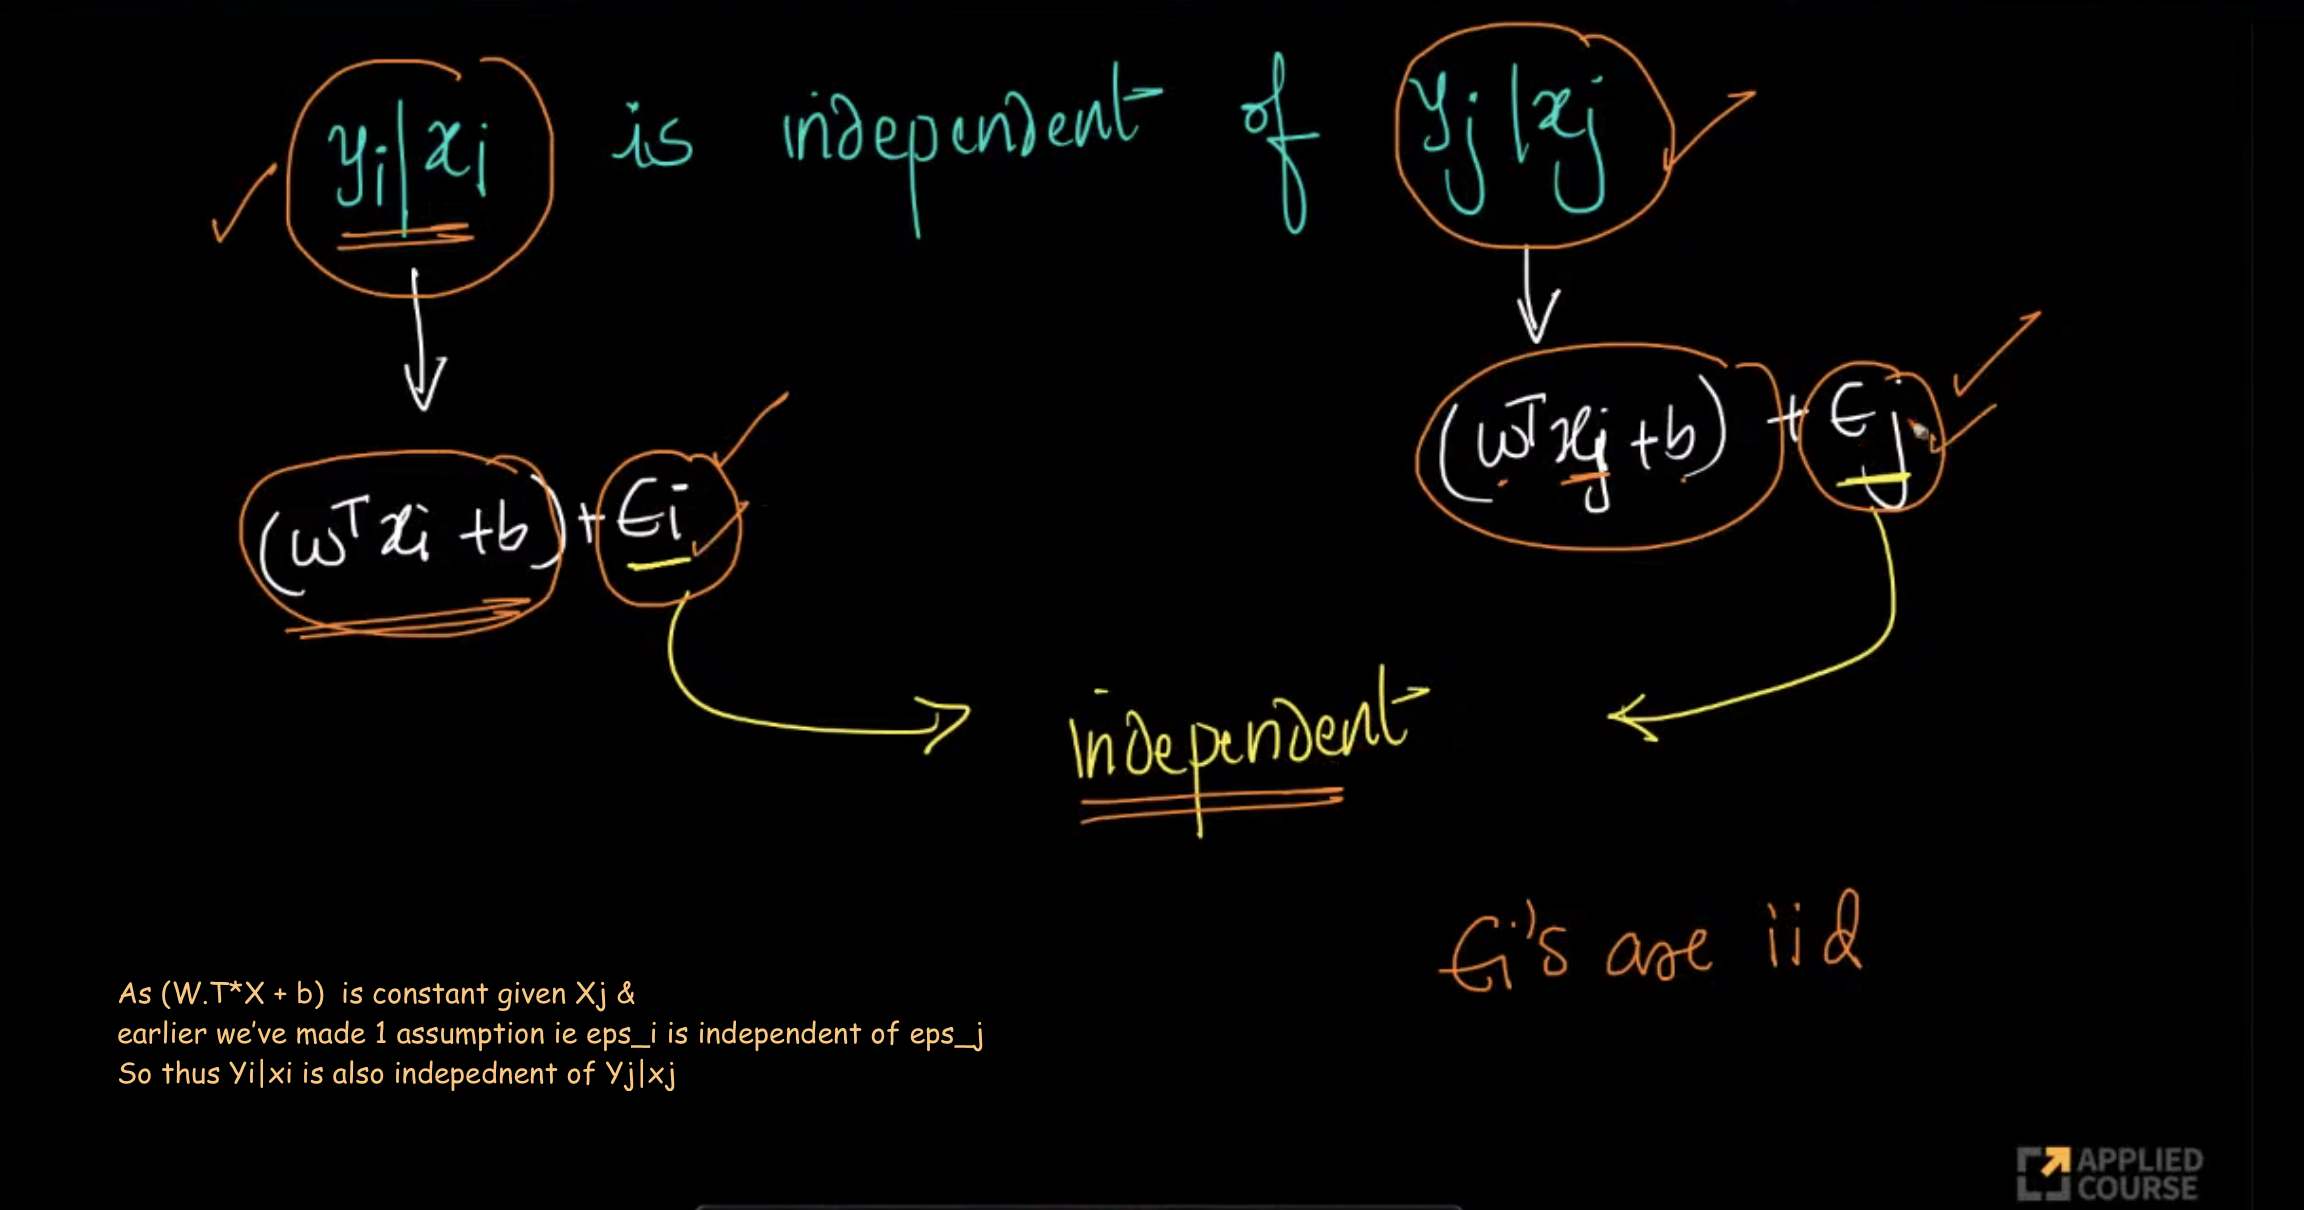 yi|xi is independent of yj|xj
(wᵀxi + b) + ϵi
(wᵀxj + b) + ϵj
independent
ϵi's are iid
As (W.T*X + b)  is constant given Xj &
earlier we've made 1 assumption ie eps_i is independent of eps_j
So thus Yi|xi is also indepednent of Yj|xj
APPLIED
COURSE